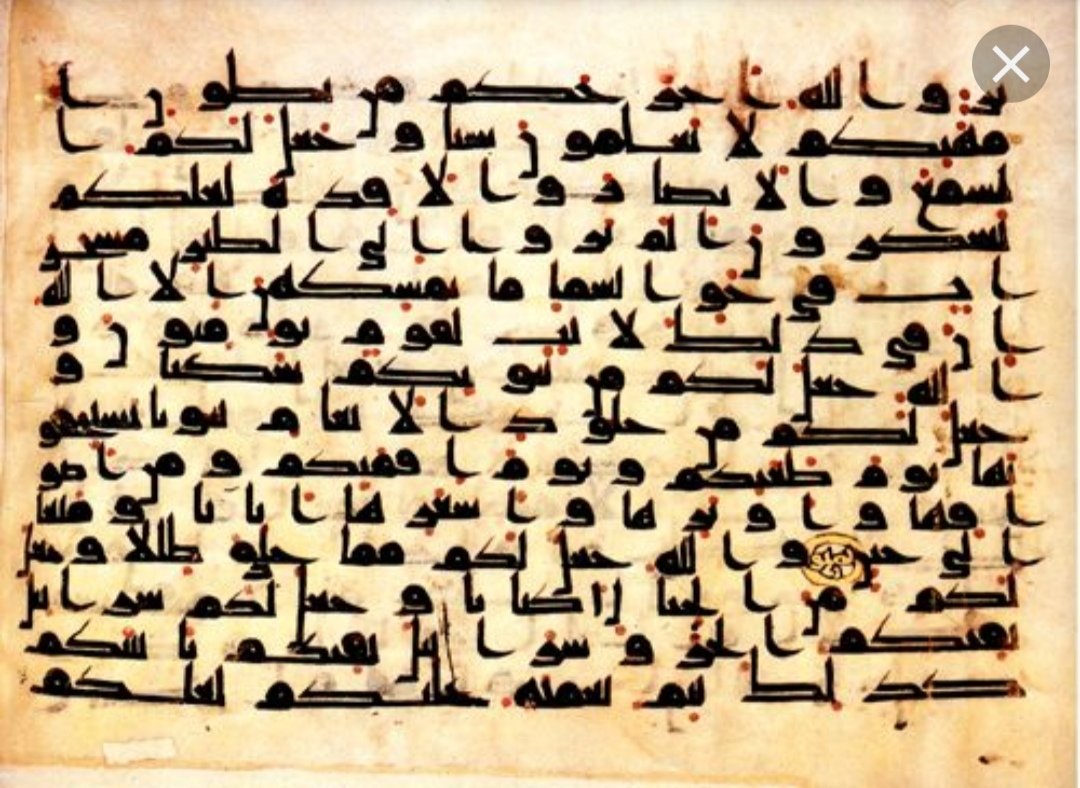 ير والله اخرجكم من بطون ا
مهتكم لا تعلمون شيا وجعل لكم ا
لسمع والابصار والافدة لعلكم
تشكرون الم يروا الى الطير مسخر
ات في جو السما ما يمسكهن الا الله
ان في ذلك لايت لقوم يومنون و
الله جعل لكم من بيوتكم سكنا و
جعل لكم من جلود الانعام بيوتا تستخفو
نها يوم ظعنكم ويوم اقامتكم ومن اصو
افها واوبارها واشعارها اثاثا ومتعا
الى حين والله جعل لكم مما خلق ظللا وجعل
لكم من الجبال اكننا وجعل لكم سربيل
تقيكم الحر وسربيل تقيكم باسكم
كذلك يتم نعمته عليكم لعلكم